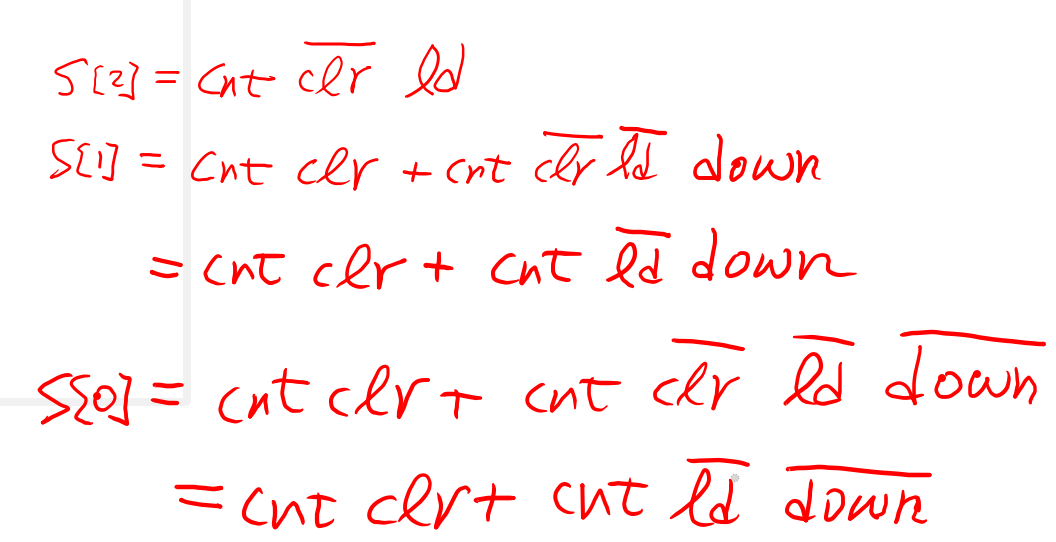 S[2] = cnt c̅l̅r̅ ld
S[1] = cnt clr + cnt c̅l̅r̅ l̅d̅ down
= cnt clr + cnt l̅d̅ down
S[0] = cnt clr + cnt c̅l̅r̅ l̅d̅ d̅o̅w̅n̅
= cnt clr + cnt l̅d̅ d̅o̅w̅n̅